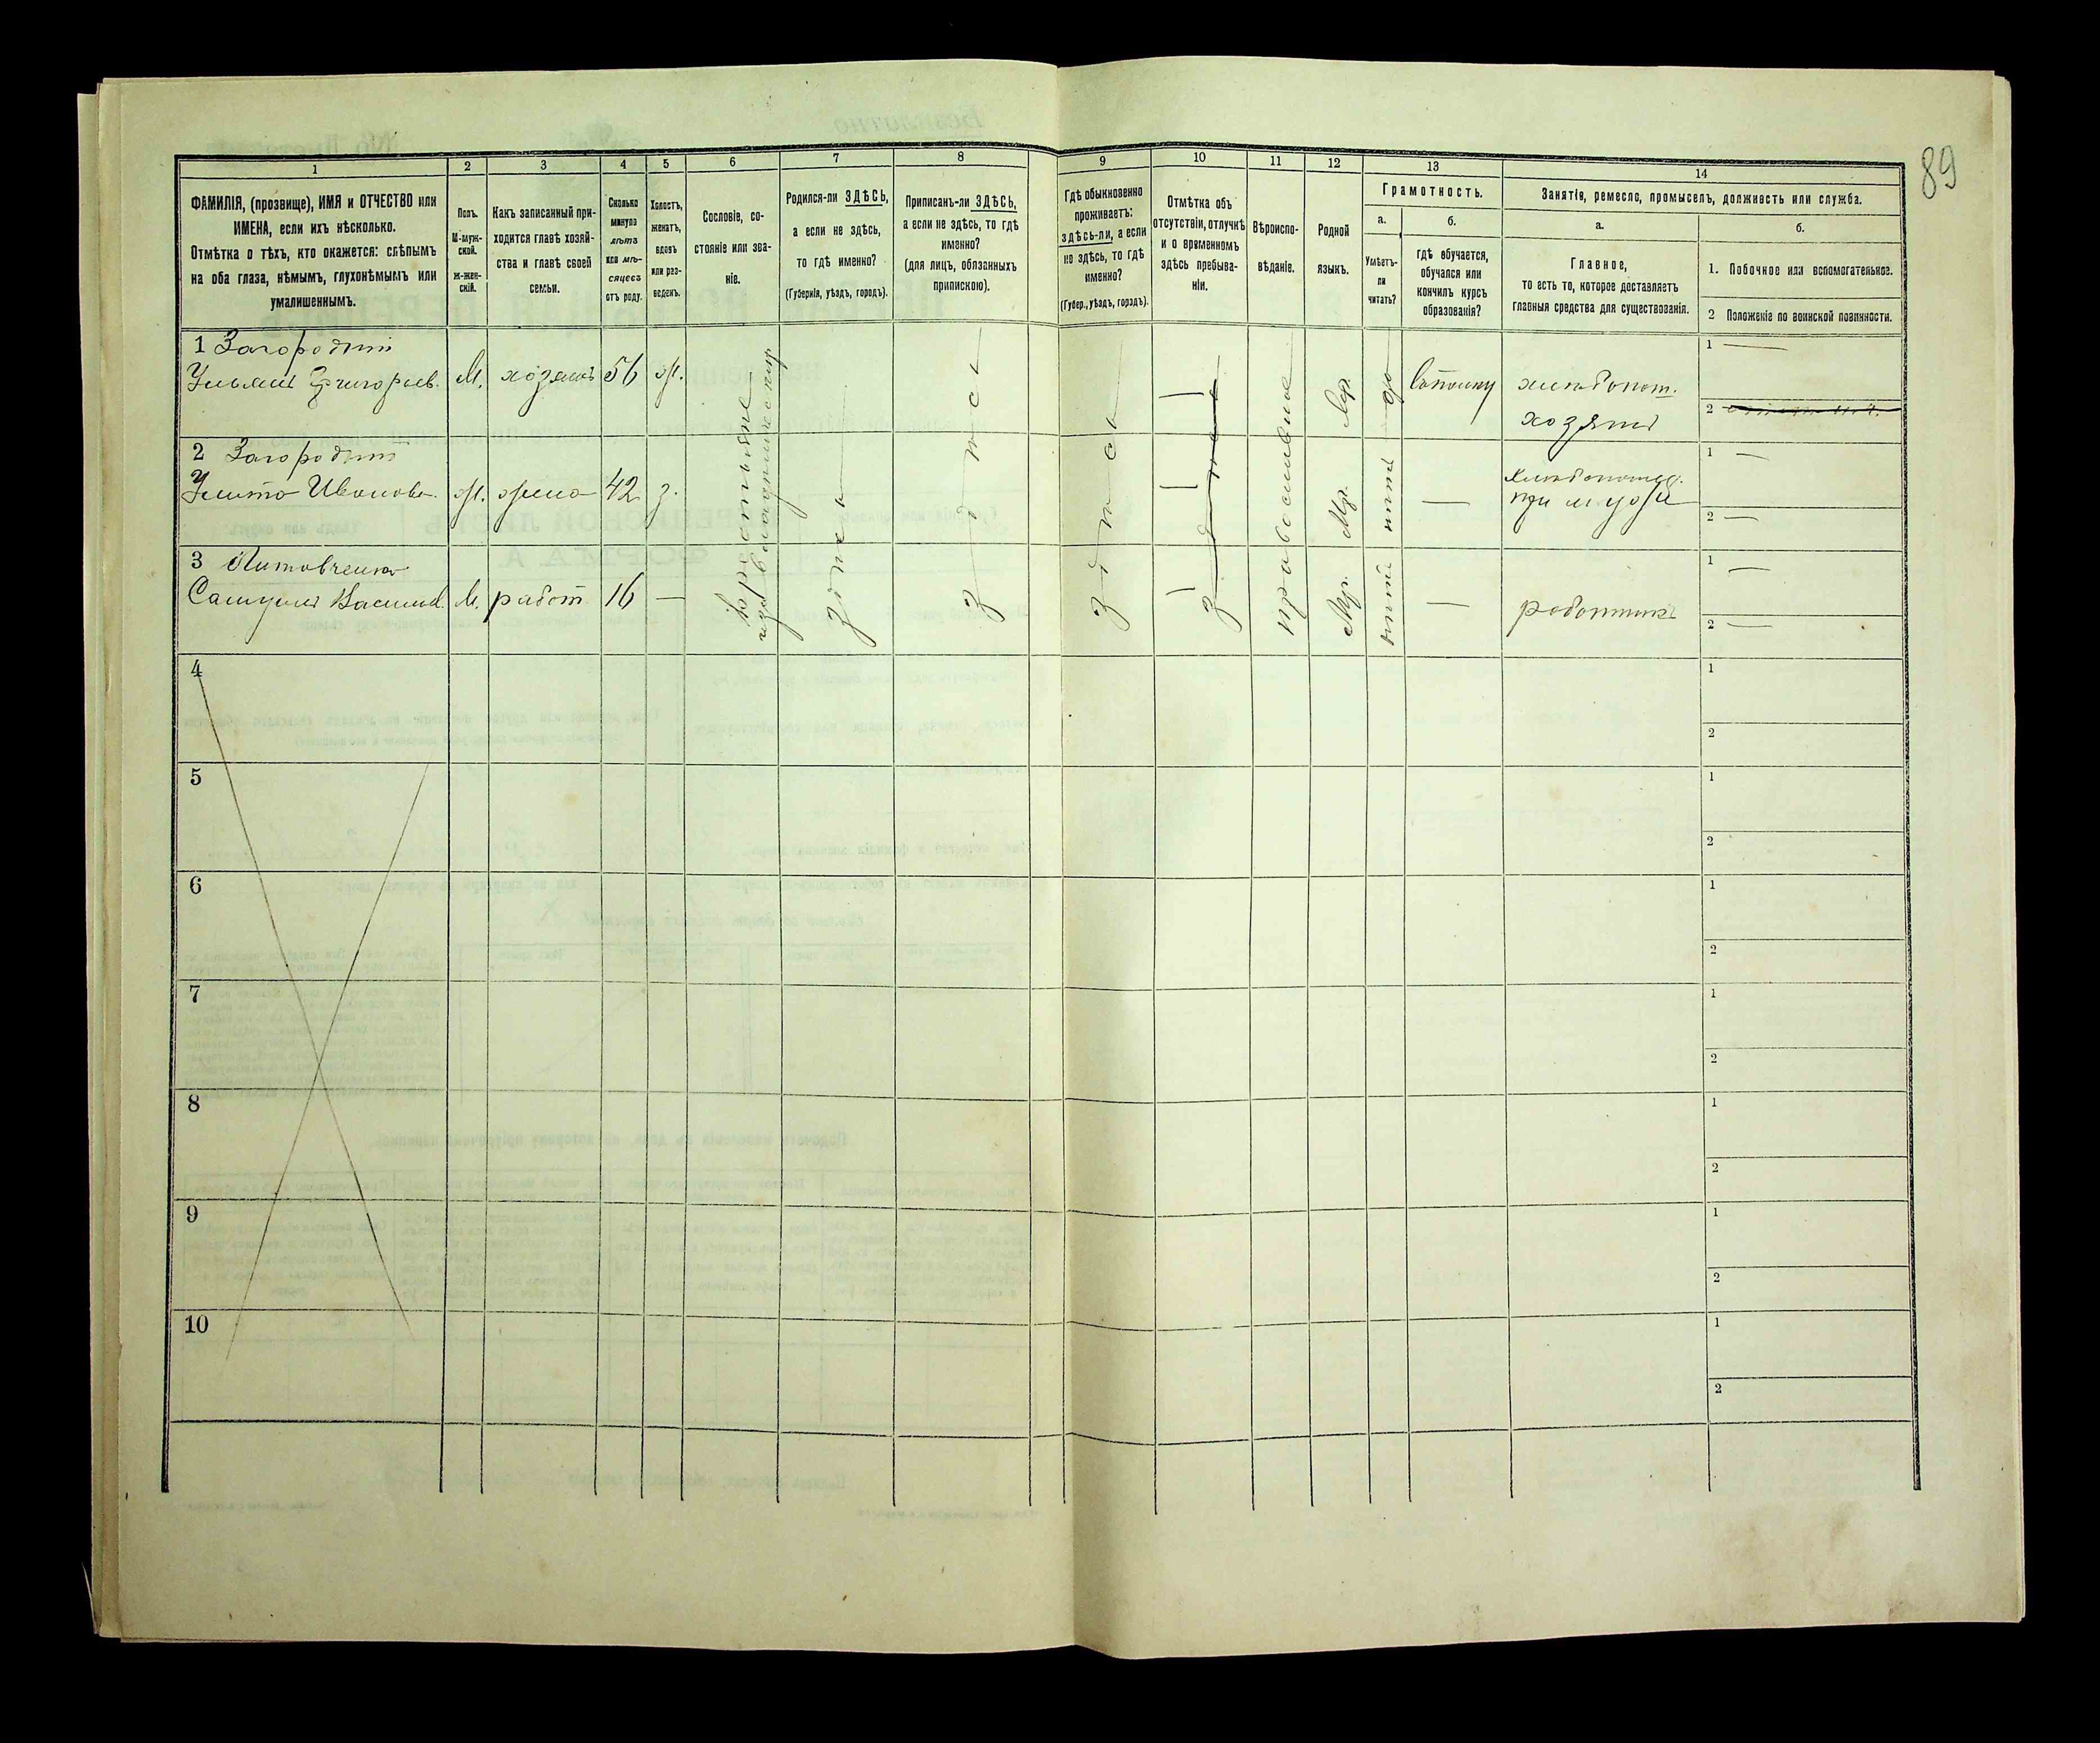 89
1 2 3 4 5 6 7 8 9 10 11 12 13 14
ФАМИЛІЯ, (прозвище), ИМЯ и ОТЧЕСТВО или
ИМЕНА, если ихъ нѣсколько.
Отмѣтка о тѣхъ, кто окажется: слѣпымъ
на оба глаза, нѣмымъ, глухонѣмымъ или
умалишеннымъ.
Полъ.
М-муж-
ской.
Ж-жен-
скій.
Какъ записанный при-
ходится главѣ хозяй-
ства и главѣ своей
семьи.
Сколько
минуло
лѣтъ
или мѣ-
сяцевъ
отъ роду.
Холостъ,
женатъ,
вдовъ
или раз-
веденъ.
Сословіе, со-
стояніе или зва-
ніе.
Родился-ли ЗДѢСЬ,
а если не здѣсь,
то гдѣ именно?
(Губернія, уѣздъ, городъ).
Приписанъ-ли ЗДѢСЬ,
а если не здѣсь, то гдѣ
именно?
(для лицъ, обязанныхъ
припискою).
Гдѣ обыкновенно
проживаетъ:
здѣсь-ли, а если
не здѣсь, то гдѣ
именно?
(Губер., уѣздъ, городъ).
Отмѣтка объ
отсутствіи, отлучкѣ
и о временномъ
здѣсь пребыва-
ніи.
Вѣроиспо-
вѣданіе.
Родной
языкъ.
Грамотность.
а.
Умѣетъ-
ли
читать?
б.
гдѣ обучается,
обучался или
кончилъ курсъ
образованія?
Занятіе, ремесло, промыселъ, должность или служба.
а.
Главное,
то есть то, которое доставляетъ
главныя средства для существованія.
б.
1. Побочное или вспомогательное.
2 Положеніе по воинской повинности.
1 Загородній
Ульянъ Григорьев. М. хозяинъ 56 ж.
хлѣбопаш.
хозяинъ
1
2
2 Загородній
Улита Иванова. ж. жена 42 з.
при мужѣ
1
2
3 Литовченко
Самуилъ Васильев. М. работ 16 —
работникъ
1
2
крестьяне
здѣсь
здѣсь
здѣсь
здѣсь
православное
Мр.
Мр.
Мр.
да
нѣтъ
нѣтъ
4
1
2
5
1
2
6
1
2
7
1
2
8
1
2
9
1
2
10
1
2